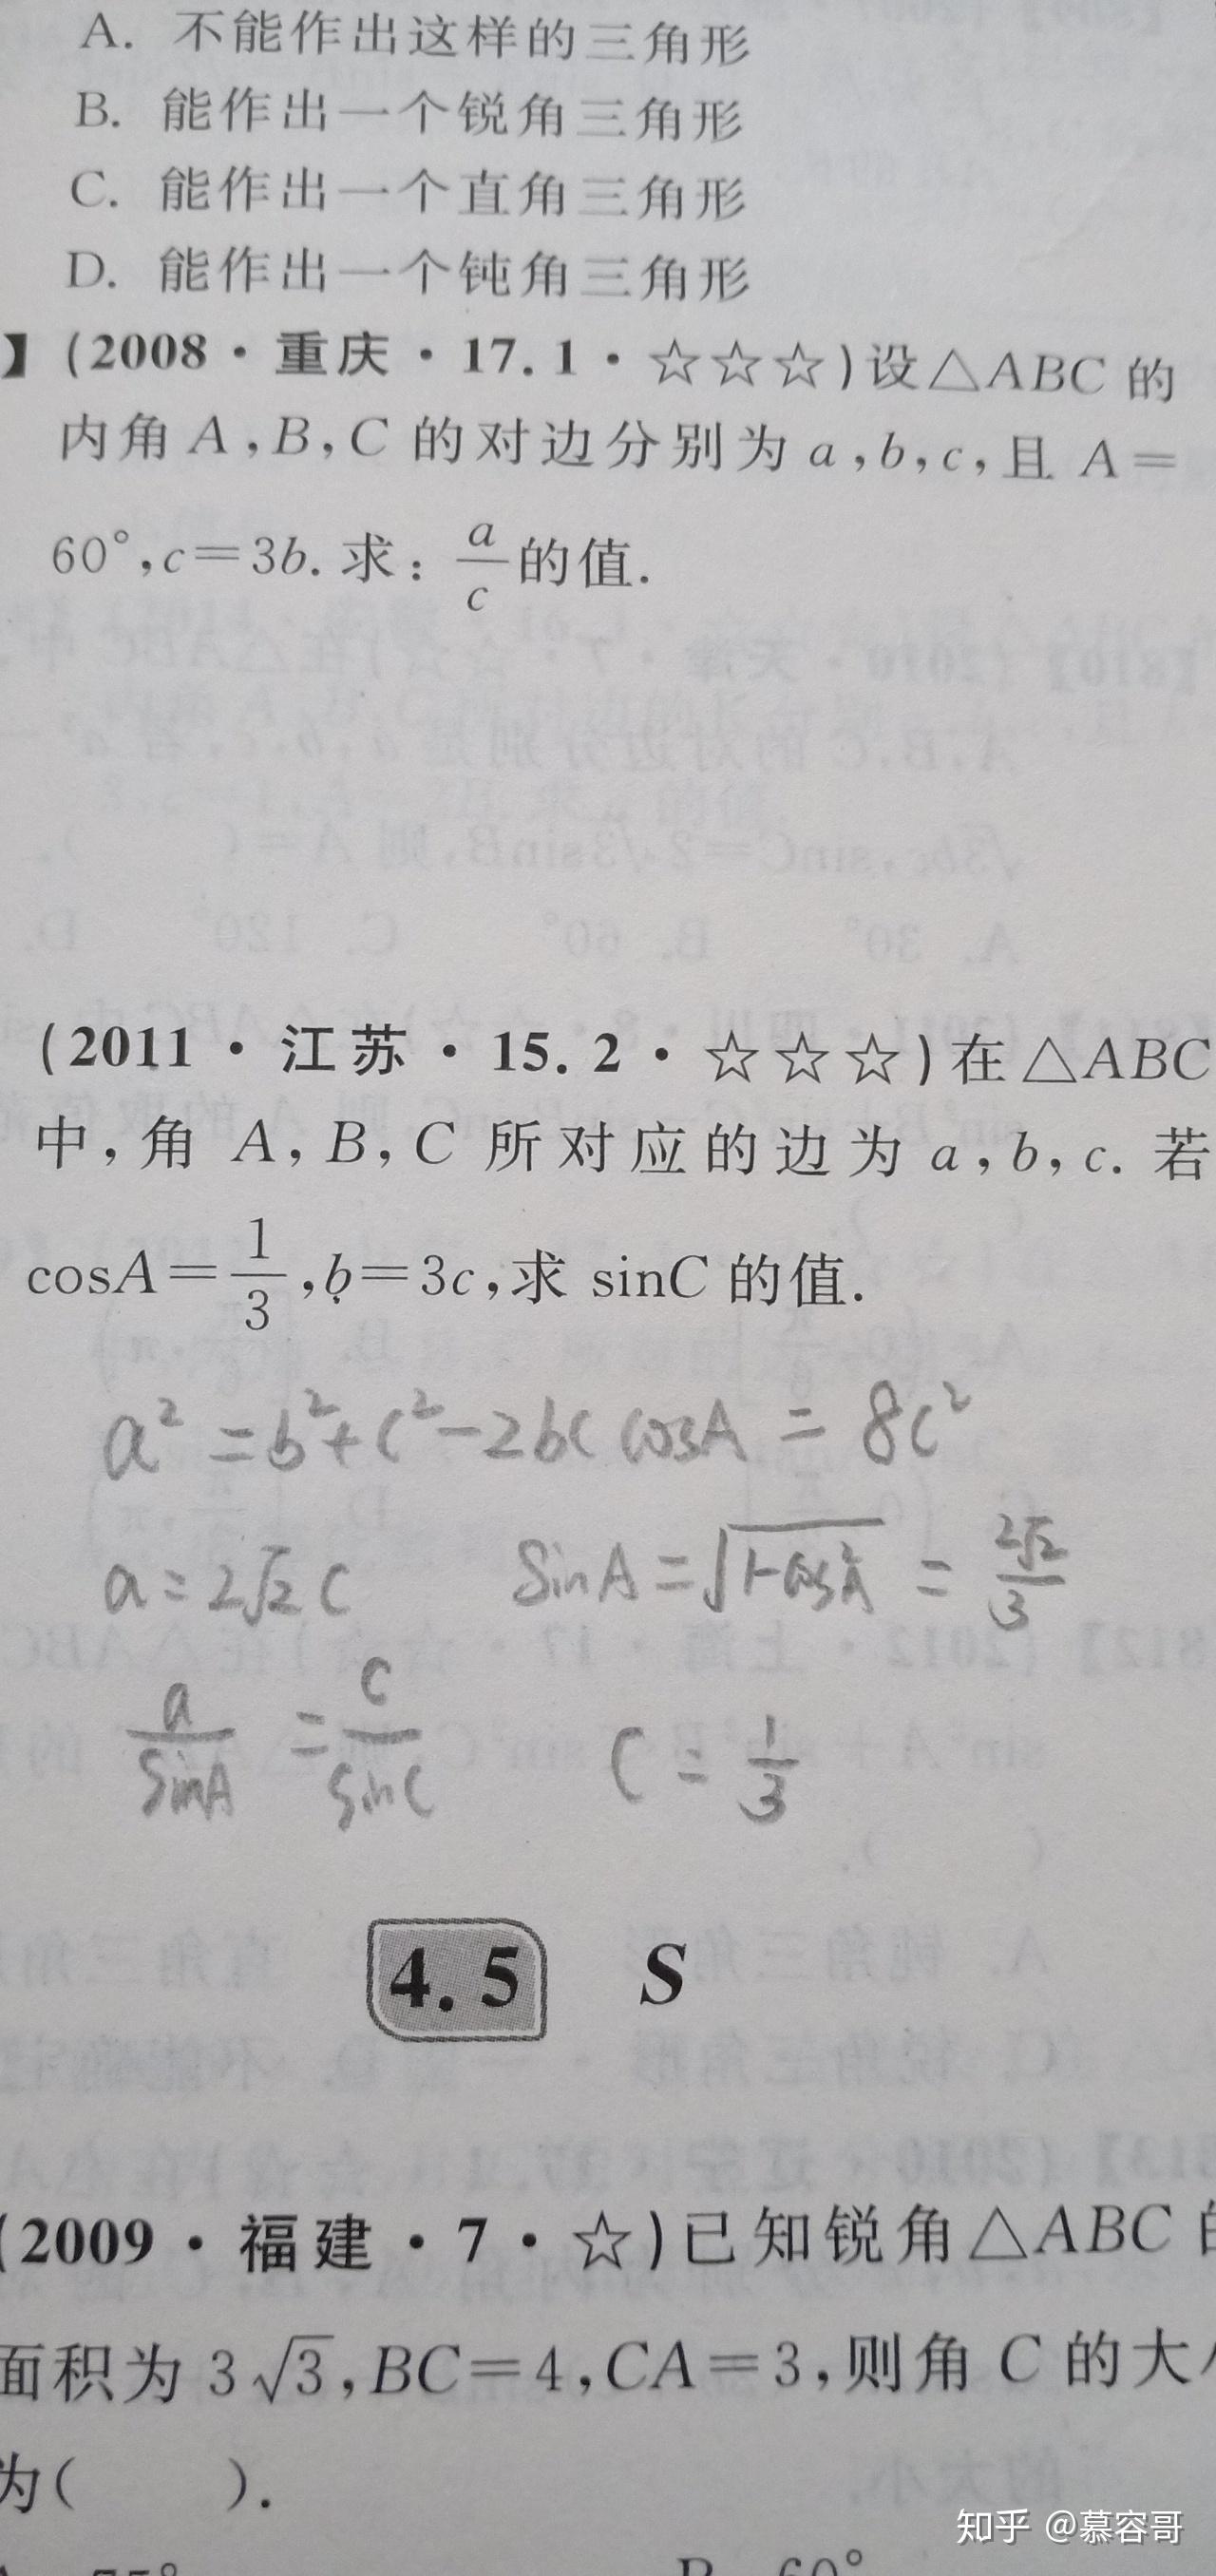 A. 不能作出这样的三角形
B. 能作出一个锐角三角形
C. 能作出一个直角三角形
D. 能作出一个钝角三角形
】(2008·重庆·17.1·☆☆☆)设△ABC的
内角A,B,C的对边分别为a,b,c,且A=
60°,c=3b.求:a/c的值.
(2011·江苏·15.2·☆☆☆)在△ABC
中,角A,B,C所对应的边为a,b,c.若
cosA=1/3,b=3c,求sinC的值.
a²=b²+c²-2bc cosA=8c²
a=2√2c sinA=√(1-cos²A)=2√2/3
a/sinA=c/sinC C=1/3
4.5 S
(2009·福建·7·☆)已知锐角△ABC的
面积为3√3,BC=4,CA=3,则角C的大小
为( ).
75° B. 60°
知乎 @慕容哥